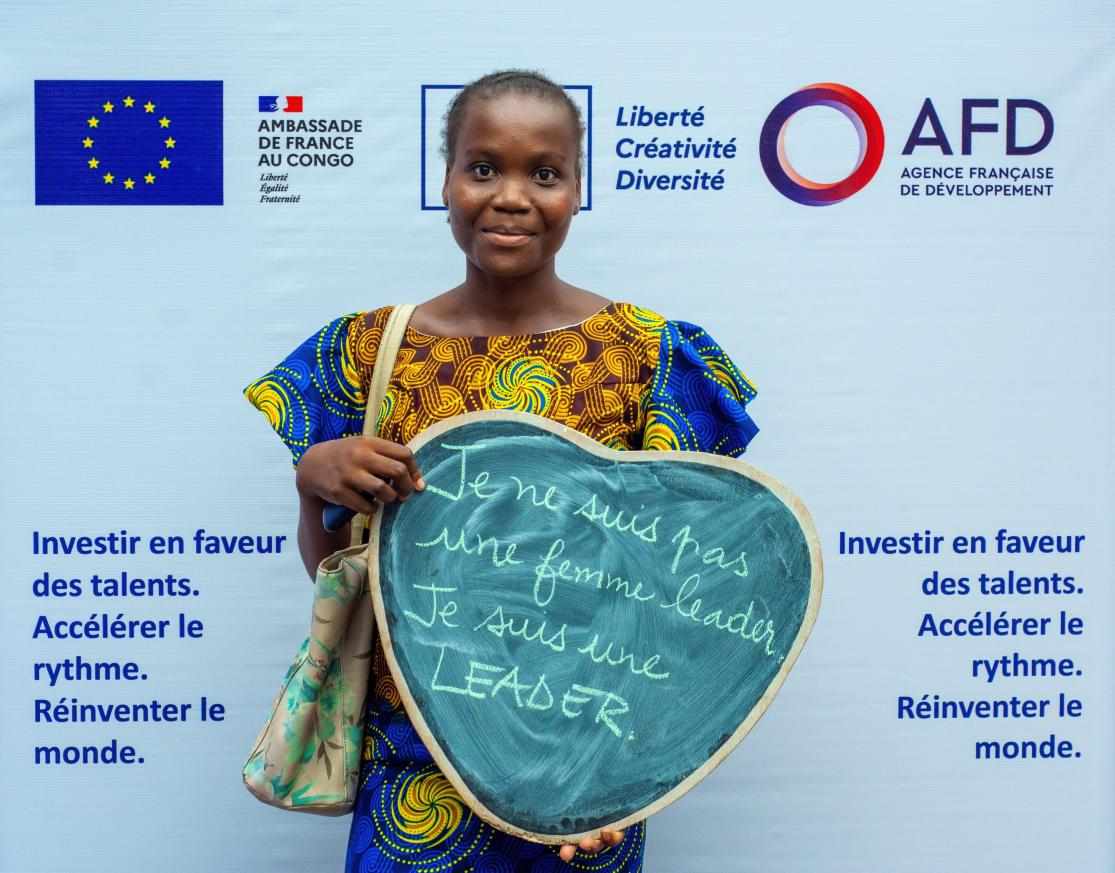 AMBASSADE
DE FRANCE
AU CONGO
Liberté
Égalité
Fraternité
Liberté
Créativité
Diversité
AFD
AGENCE FRANÇAISE
DE DÉVELOPPEMENT
Je ne suis pas
une femme leader.
Je suis une
LEADER.
Investir en faveur
des talents.
Accélérer le
rythme.
Réinventer le
monde.
Investir en faveur
des talents.
Accélérer le
rythme.
Réinventer le
monde.